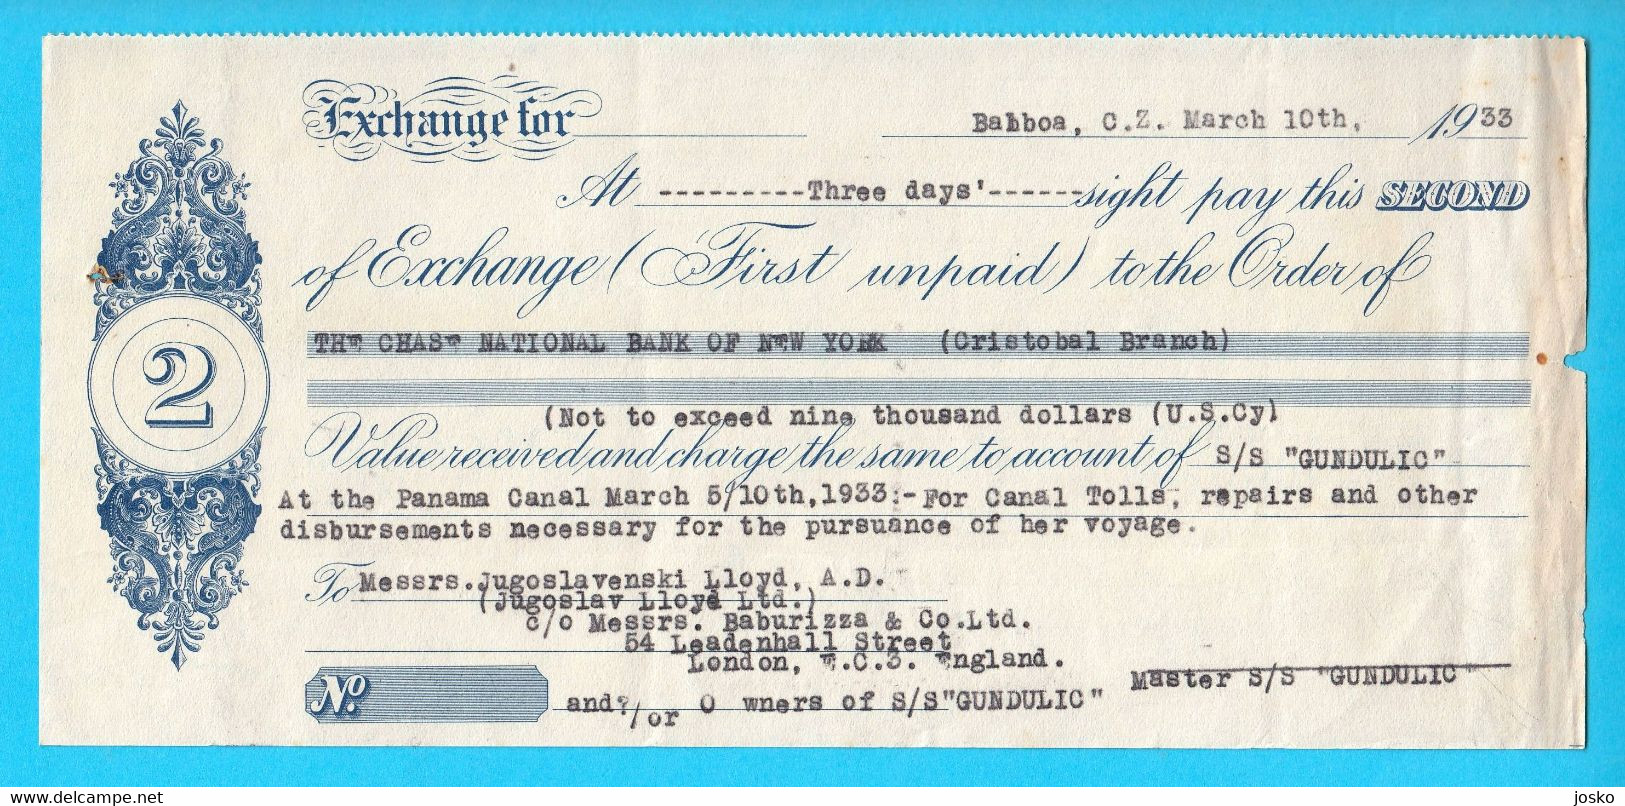 Exchange for
Balboa, C.Z. March 10th, 1933
At ---------Three days'------sight pay this SECOND
of Exchange (First unpaid) to the Order of
THE CHASE NATIONAL BANK OF NEW YORK (Cristobal Branch)
(Not to exceed nine thousand dollars (U.S.Cy)
Value received and charge the same to account of S/S "GUNDULIC"
At the Panama Canal March 5/10th,1933:-For Canal Tolls, repairs and other
disbursements necessary for the pursuance of her voyage.
To Messrs.Jugoslavenski Lloyd, A.D.
(Jugoslav Lloyd Ltd.)
c/o Messrs. Baburizza & Co.Ltd.
54 Leadenhall Street
London, E.C.3. England.
Master S/S "GUNDULIC"
No.
and?/or O wners of S/S"GUNDULIC"
2
www.delcampe.net
josko